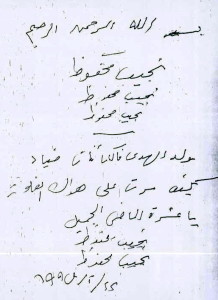 بسم الله الرحمن الرحيم
نجيب محفوظ
نجيب محفوظ
نجيب محفوظ
ولد الهدى فالكائنات ضياء
كيف مرت على هواك القلوب
يا عشرة الماضي الجميل
نجيب محفوظ
نجيب محفوظ